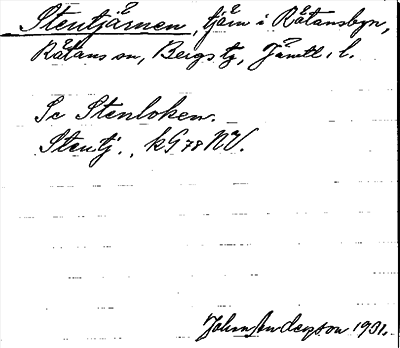 Stentjärnen, tjärn i Råtansbyn,
Råtans sn, Bergs tg, Jämtl. l.
Se Stenloken.
Stentj., kG 78 NV.
John Anderzon 1931.